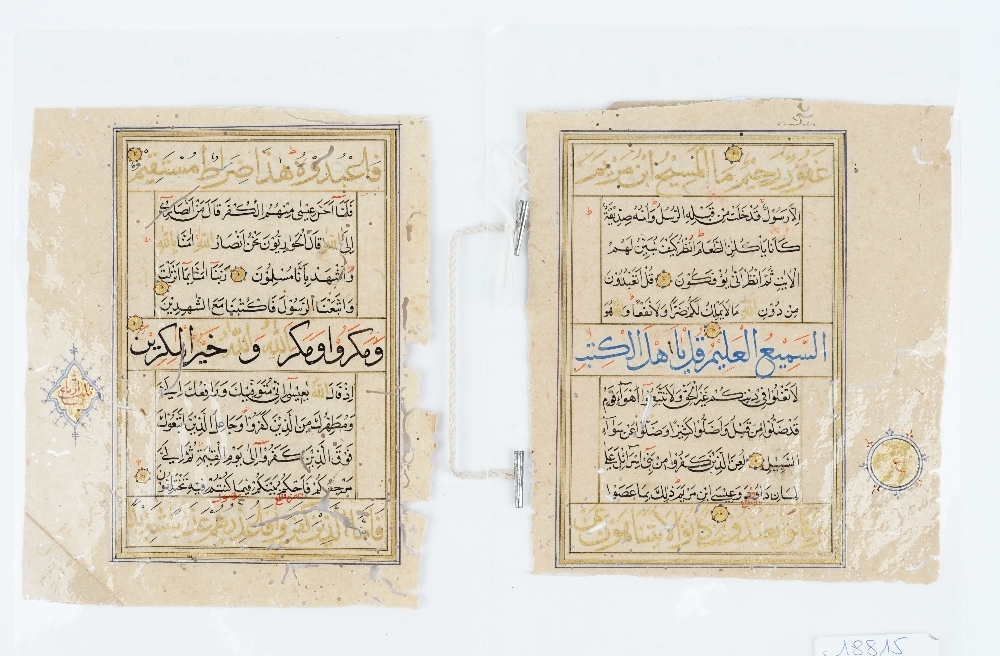 غفور رحيم ما المسيح ابن مريم
الا رسول قد خلت من قبله الرسل وامه صديقة
كانا ياكلان الطعام انظر كيف نبين لهم
الايت ثم انظر انى يؤفكون قل اتعبدون
من دون الله ما لا يملك لكم ضرا ولا نفعا والله هو
السميع العليم قل يا اهل الكتب
لا تغلوا في دينكم غير الحق ولا تتبعوا اهواء قوم
قد ضلوا من قبل واضلوا كثيرا وضلوا عن سواء
السبيل لعن الذين كفروا من بني اسرائيل على
لسان داود وعيسى ابن مريم ذلك بما عصوا
وكانوا يعتدون كانوا لا يتناهون عن
فاعبدوه هذا صراط مستقيم
فلما احس عيسى منهم الكفر قال من انصاري
الى الله قال الحواريون نحن انصار الله امنا بالله
واشهد بانا مسلمون ربنا امنا بما انزلت
واتبعنا الرسول فاكتبنا مع الشهدين
ومكروا ومكر الله والله خير المكرين
اذ قال الله يعيسى اني متوفيك ورافعك الي
ومطهرك من الذين كفروا وجاعل الذين اتبعوك
فوق الذين كفروا الى يوم القيمة ثم الي
مرجعكم فاحكم بينكم فيما كنتم فيه تختلفون
فاما الذين كفروا فاعذبهم عذابا شديدا
18815